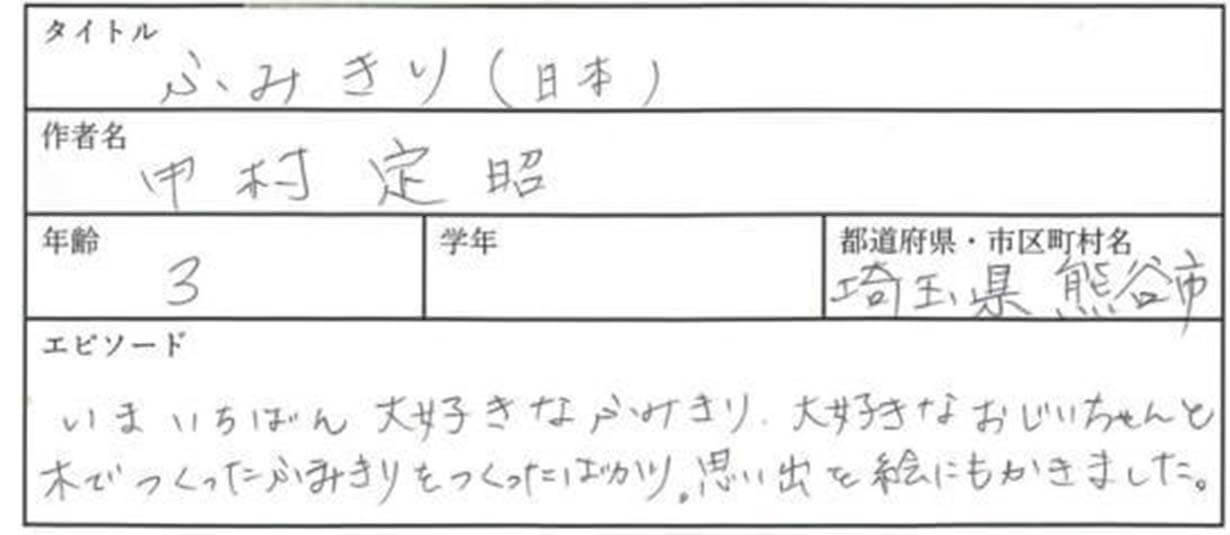 タイトル
ふみきり(日本)
作者名
甲村 定昭
年齢
3
学年
都道府県・市区町村名
埼玉県 熊谷市
エピソード
いまいちばん大好きなふみきり.大好きなおじいちゃんと
木でつくったふみきりをつくったばかり。思い出を絵にもかきました。